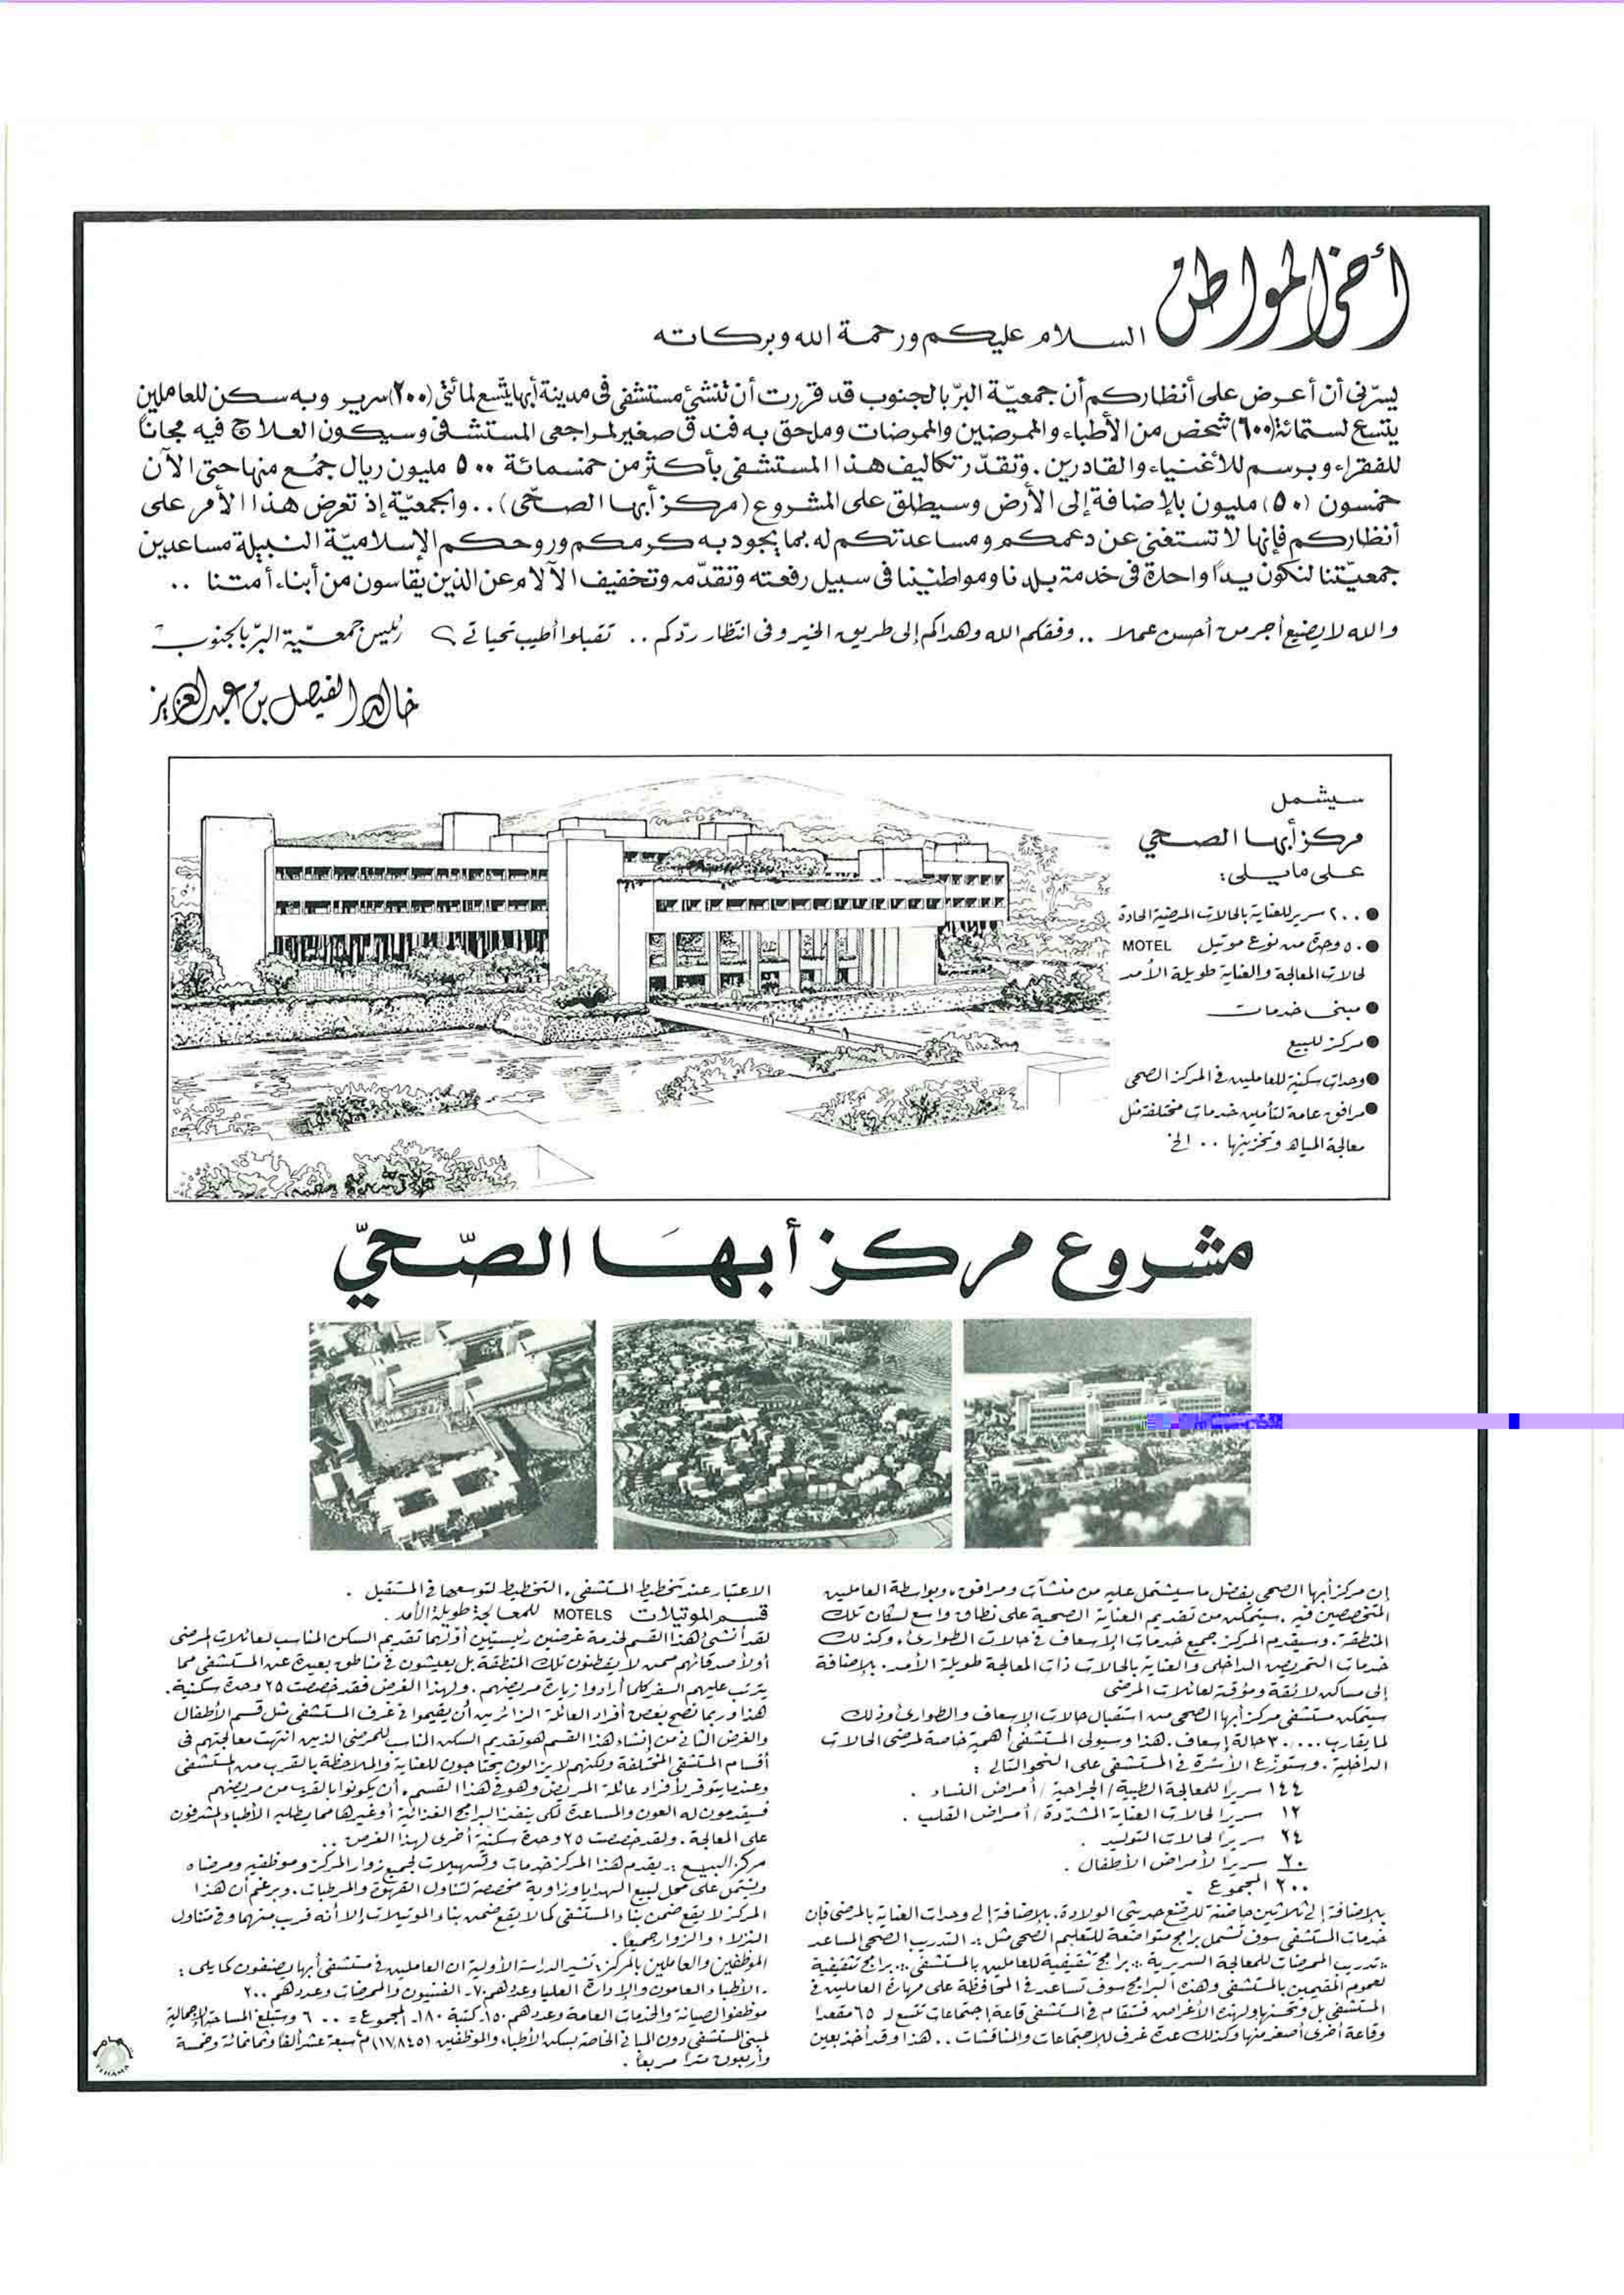 أخي المواطن
السلام عليكم ورحمة الله وبركاته
يسرّني أن أعرض على أنظاركم أن جمعيّة البرّ بالجنوب قد قررت أن تنشئ مستشفى في مدينة أبها يتّسع لمائتي (٢٠٠) سرير وبه سكن للعاملين
يتسع لستمائة (٦٠٠) شخص من الأطباء والممرضين والممرضات وملحق به فندق صغير لمراجعي المستشفى وسيكون العلاج فيه مجاناً
للفقراء وبرسم للأغنياء والقادرين . وتقدّر تكاليف هذا المستشفى بأكثر من خمسمائة ٥٠٠ مليون ريال جُمع منها حتى الآن
خمسون (٥٠) مليون بالإضافة إلى الأرض وسيطلق على المشروع (مركز أبها الصحّي) .. والجمعيّة إذ تعرض هذا الأمر على
أنظاركم فإنها لا تستغني عن دعمكم ومساعدتكم له بما يجود به كرمكم وروحكم الإسلاميّة النبيلة مساعدين
جمعيّتنا لنكون يداً واحدة في خدمة بلدنا ومواطنينا في سبيل رفعته وتقدّمه وتخفيف الآلام عن الذين يقاسون من أبناء أمتنا ..
والله لا يضيع أجر من أحسن عملا .. وفقكم الله وهداكم إلى طريق الخير وفي انتظار ردّكم .. تقبلوا أطيب تحياتي ؟ رئيس جمعيّة البرّ بالجنوب
خالد الفيصل بن عبد العزيز
سيشمل
مركز أبها الصحي
على ما يلي :
● ٢٠٠ سرير للعناية بالحالات المرضية الحادة
● ٥٠ وحدة من نوع موتيل MOTEL
لحالات المعالجة والعناية طويلة الأمد
● مبنى خدمات
● مركز للبيع
● وحدات سكنية للعاملين في المركز الصحي
● مرافق عامة لتأمين خدمات مختلفة مثل
معالجة المياه وتخزينها .. الخ
مشروع مركز أبها الصّحيّ
إن مركز أبها الصحي بفضل ما سيشتمل عليه من منشآت ومرافق، وبواسطة العاملين
المتخصصين فيه . سيتمكن من تقديم العناية الصحية على نطاق واسع لسكان تلك
المنطقة . وسيقدم المركز جميع خدمات الإسعاف في حالات الطوارئ، وكذلك
خدمات التمريض الداخلي والعناية بالحالات ذات المعالجة طويلة الأمد . بالإضافة
إلى مساكن لائقة ومؤقتة لعائلات المرضى
سيتمكن مستشفى مركز أبها الصحي من استقبال حالات الإسعاف والطوارئ وذلك
لما يقارب ٣٠,٠٠٠ حالة إسعاف . هذا وسيولي المستشفى أهمية خاصة لمرضى الحالات
الداخلية . وستوزع الأسرّة في المستشفى على النحو التالي :
١٤٤ سريراً للمعالجة الطبية / الجراحية / أمراض النساء .
١٢ سريراً لحالات العناية المشدّدة / أمراض القلب .
٢٤ سريراً لحالات التوليد .
٢٠ سريراً لأمراض الأطفال .
٢٠٠ المجموع .
بالإضافة إلى ثلاثين حاضنة للرضع حديثي الولادة . بالإضافة إلى وحدات العناية بالمرضى فإن
خدمات المستشفى سوف تشمل برامج متواضعة للتعليم الصحي مثل :ـ التدريب الصحي المساعد
ـ تدريب الممرضات للمعالجة السريرية ـ برامج تثقيفية للعاملين بالمستشفى ـ برامج تثقيفية
لعموم المقيمين بالمستشفى وهذه البرامج سوف تساعد في المحافظة على مهارة العاملين في
المستشفى بل وتحسنها ولهذه الأغراض فستقام في المستشفى قاعة إجتماعات تتسع لـ ٦٥ مقعداً
وقاعة أخرى أصغر منها وكذلك عدة غرف للإجتماعات والمناقشات .. هذا وقد أخذ بعين
الاعتبار عند تخطيط المستشفى، التخطيط لتوسعها في المستقبل .
قسم الموتيلات MOTELS للمعالجة طويلة الأمد .
لقد أنشئ هذا القسم لخدمة غرضين رئيسيين أولهما تقديم السكن المناسب لعائلات المرضى
أولأصدقائهم ممن لا يقطنون تلك المنطقة بل يعيشون في مناطق بعيدة عن المستشفى مما
يترتب عليهم السفر كلما أرادوا زيارة مريضهم . ولهذا الغرض فقد خصصت ٢٥ وحدة سكنية .
هذا وربما نصح بعض أفراد العائلة الزائرين أن يقيموا في غرف المستشفى مثل قسم الأطفال
والغرض الثاني من إنشاء هذا القسم هو تقديم السكن المناسب للمرضى الذين انتهت معالجتهم في
أقسام المستشفى المختلفة ولكنهم لا يزالون يحتاجون للعناية والملاحظة بالقرب من المستشفى
وعندما يتوفر لأفراد عائلة المريض وهو في هذا القسم، أن يكونوا بالقرب من مريضهم
فسيقدمون له العون والمساعدة لكي ينفذ البرامج الغذائية أو غيرها مما يطلبه الأطباء المشرفون
على المعالجة . ولقد خصصت ٢٥ وحدة سكنية أخرى لهذا الغرض ..
مركز البيع :ـ يقدم هذا المركز خدمات وتسهيلات لجميع زوار المركز وموظفيه ومرضاه
ويشتمل على محل لبيع الهدايا وزاوية مخصصة لتناول القهوة والمرطبات . وبرغم أن هذا
المركز لا يقع ضمن بناء المستشفى كما لا يقع ضمن بناء الموتيلات إلا أنه قريب منهما وفي متناول
النزلاء والزوار جميعاً .
الموظفين والعاملين بالمركز : تشير الدراسة الأولية ان العاملين في مستشفى أبها يصنفون كما يلي :
ـ الأطباء العامون والإدارة العليا وعددهم ٧٠ـ الفنيون والممرضات وعددهم ٢٠٠
موظفو الصيانة والخدمات العامة وعددهم ١٥٠ـ كتبة ١٨٠ـ المجموع = ٦٠٠ وستبلغ المساحة الإجمالية
لمبنى المستشفى دون المباني الخاصة بسكن الأطباء والموظفين (١٧,٨٤٥) م٢ سبعة عشر ألفا وثمانمائة وخمسة
وأربعون مترا مربعاً .
تهامة
TIHAMA